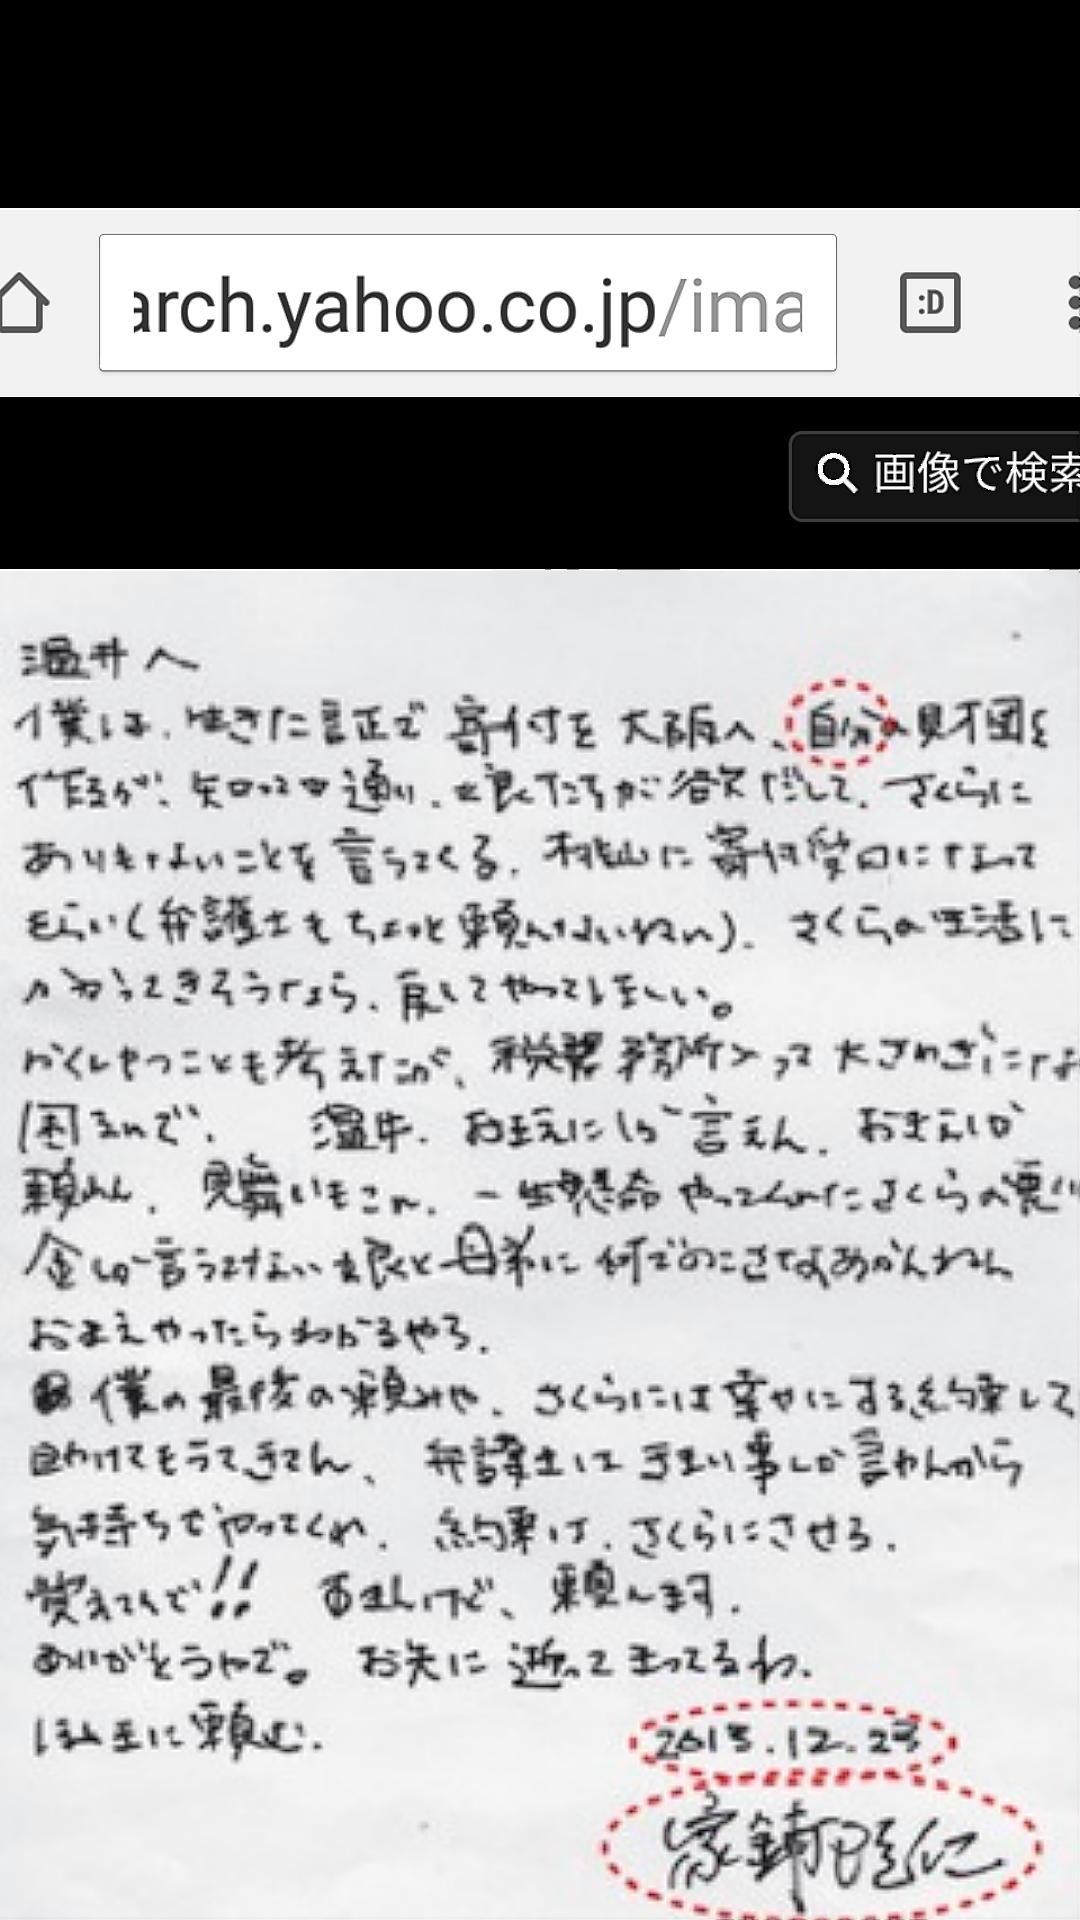 arch.yahoo.co.jp/ima
:D
画像で検索
温井へ
僕は、生きた証正で寄付を大阪へ、自分の財団を
作るが、知っての通り、娘たちが欲だして、さくらに
ありもせんことを言うてくる、桃山に寄付窓口になって
もらい(弁護士もちょっと頼んないねん)、さくらの生活に
かかってきそうなら、戻してやってほしい。
かくしもつことも考えたが、税務所入って大さわぎにな
困るんで、温井、おまえにしか言えん、おまえしか
頼れん、見舞いもこん、一生懸命やってくれたさくらの悪い
金しか言うてけえへん娘と母弟に何でのこさなあかんねん
おまえやったらわかるやろ、
僕の最後の頼みや、さくらには幸せにする約束して
助けてもうてきてん、弁護士はうまい事しか言わんから
気持ちでやってくれ、約束は、さくらにさせろ、
覚えてんで!! 頼んます、
ありがとうやで。お先に逝って まってるわ、
ほんまに頼む、
2015.12.23
家鋪隆仁